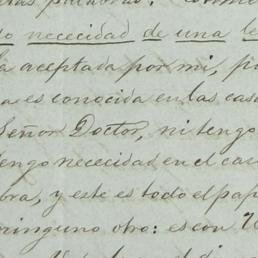 palabras:
nececidad de una
aceptada por mi,
es conocida en las
Señor Doctor, ni tengo
tengo nececidad en el
y este es todo el
ninguno otro: es con